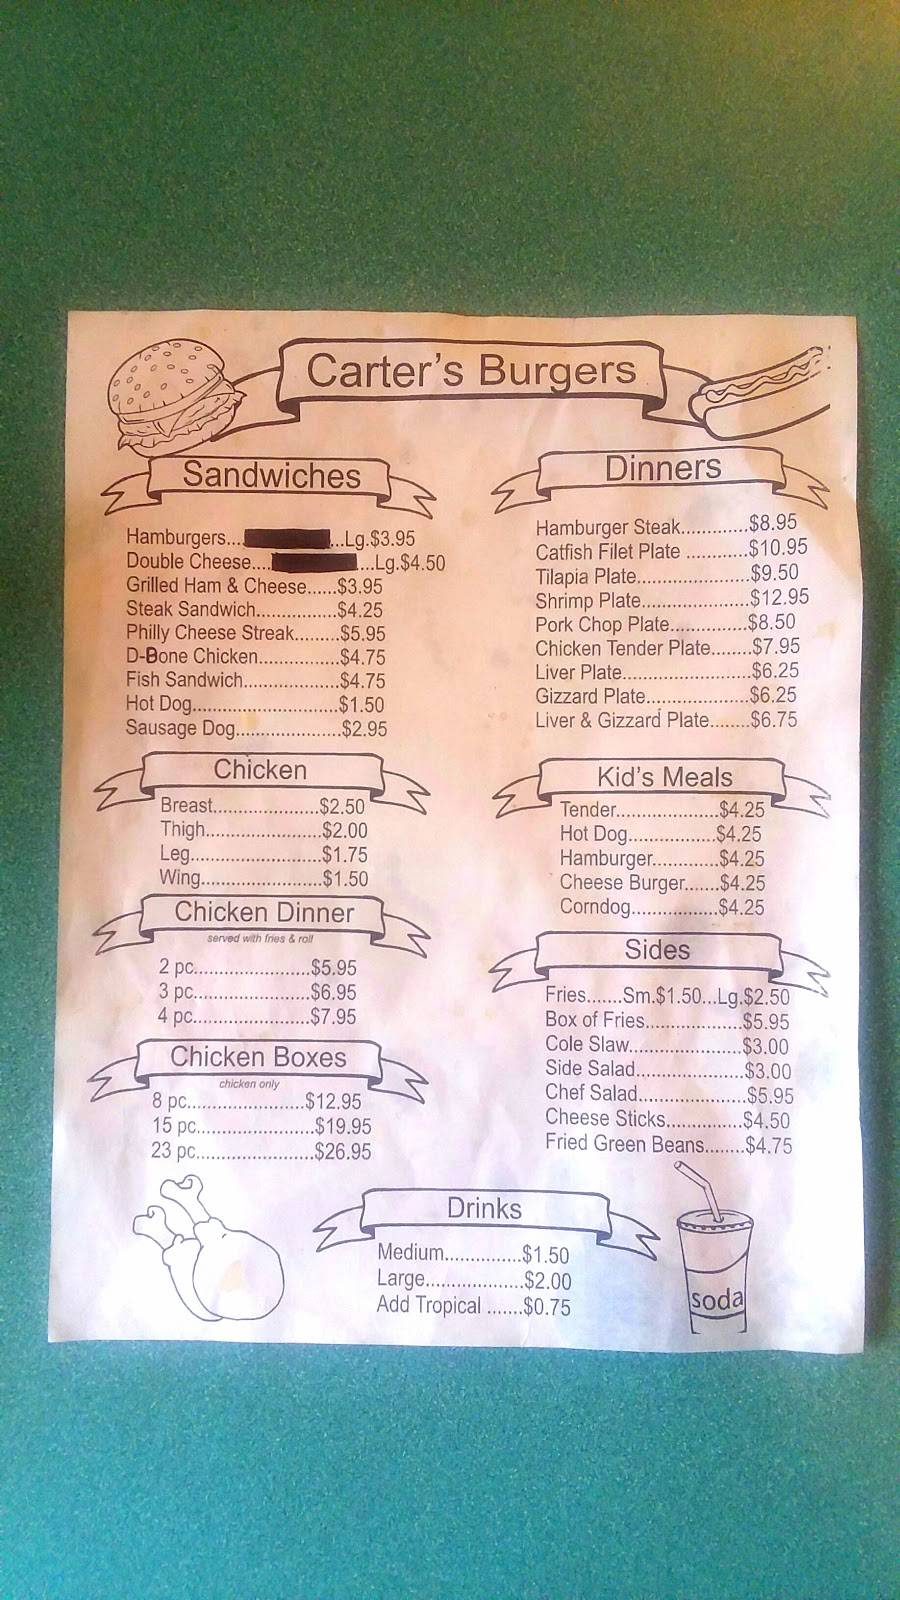 Carter's Burgers
Sandwiches
Hamburgers.... ...Lg.$3.95
Double Cheese.... ...Lg.$4.50
Grilled Ham & Cheese......$3.95
Steak Sandwich...............$4.25
Philly Cheese Streak.........$5.95
D-Bone Chicken...............$4.75
Fish Sandwich..................$4.75
Hot Dog...........................$1.50
Sausage Dog....................$2.95
Chicken
Breast....................$2.50
Thigh......................$2.00
Leg.........................$1.75
Wing.......................$1.50
Chicken Dinner
served with fries & roll
2 pc......................$5.95
3 pc......................$6.95
4 pc......................$7.95
Chicken Boxes
chicken only
8 pc......................$12.95
15 pc......................$19.95
23 pc......................$26.95
Dinners
Hamburger Steak.............$8.95
Catfish Filet Plate ............$10.95
Tilapia Plate......................$9.50
Shrimp Plate.....................$12.95
Pork Chop Plate...............$8.50
Chicken Tender Plate........$7.95
Liver Plate.........................$6.25
Gizzard Plate....................$6.25
Liver & Gizzard Plate........$6.75
Kid's Meals
Tender....................$4.25
Hot Dog.................$4.25
Hamburger.............$4.25
Cheese Burger.......$4.25
Corndog.................$4.25
Sides
Fries.......Sm.$1.50...Lg.$2.50
Box of Fries...................$5.95
Cole Slaw......................$3.00
Side Salad.....................$3.00
Chef Salad.....................$5.95
Cheese Sticks...............$4.50
Fried Green Beans........$4.75
Drinks
Medium...............$1.50
Large...................$2.00
Add Tropical .......$0.75
soda